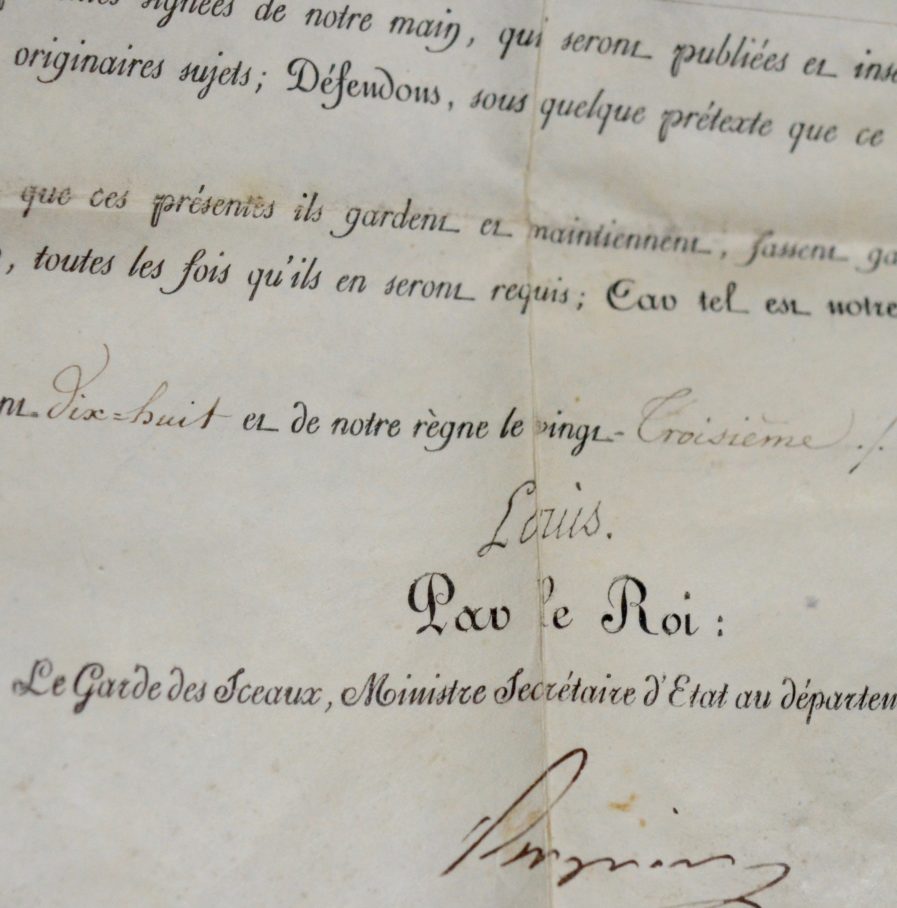 signées de notre main, qui seront publiées et insé
originaires sujets; Défendons, sous quelque prétexte que ce
que ces présentes ils gardent et maintiennent, fassent ga
, toutes les fois qu'ils en seront requis; Car tel est notre
nt Dix=huit et de notre règne le vingt-Troisième ./.
Louis.
Par le Roi:
Le Garde des Sceaux, Ministre Secrétaire d'Etat au départem